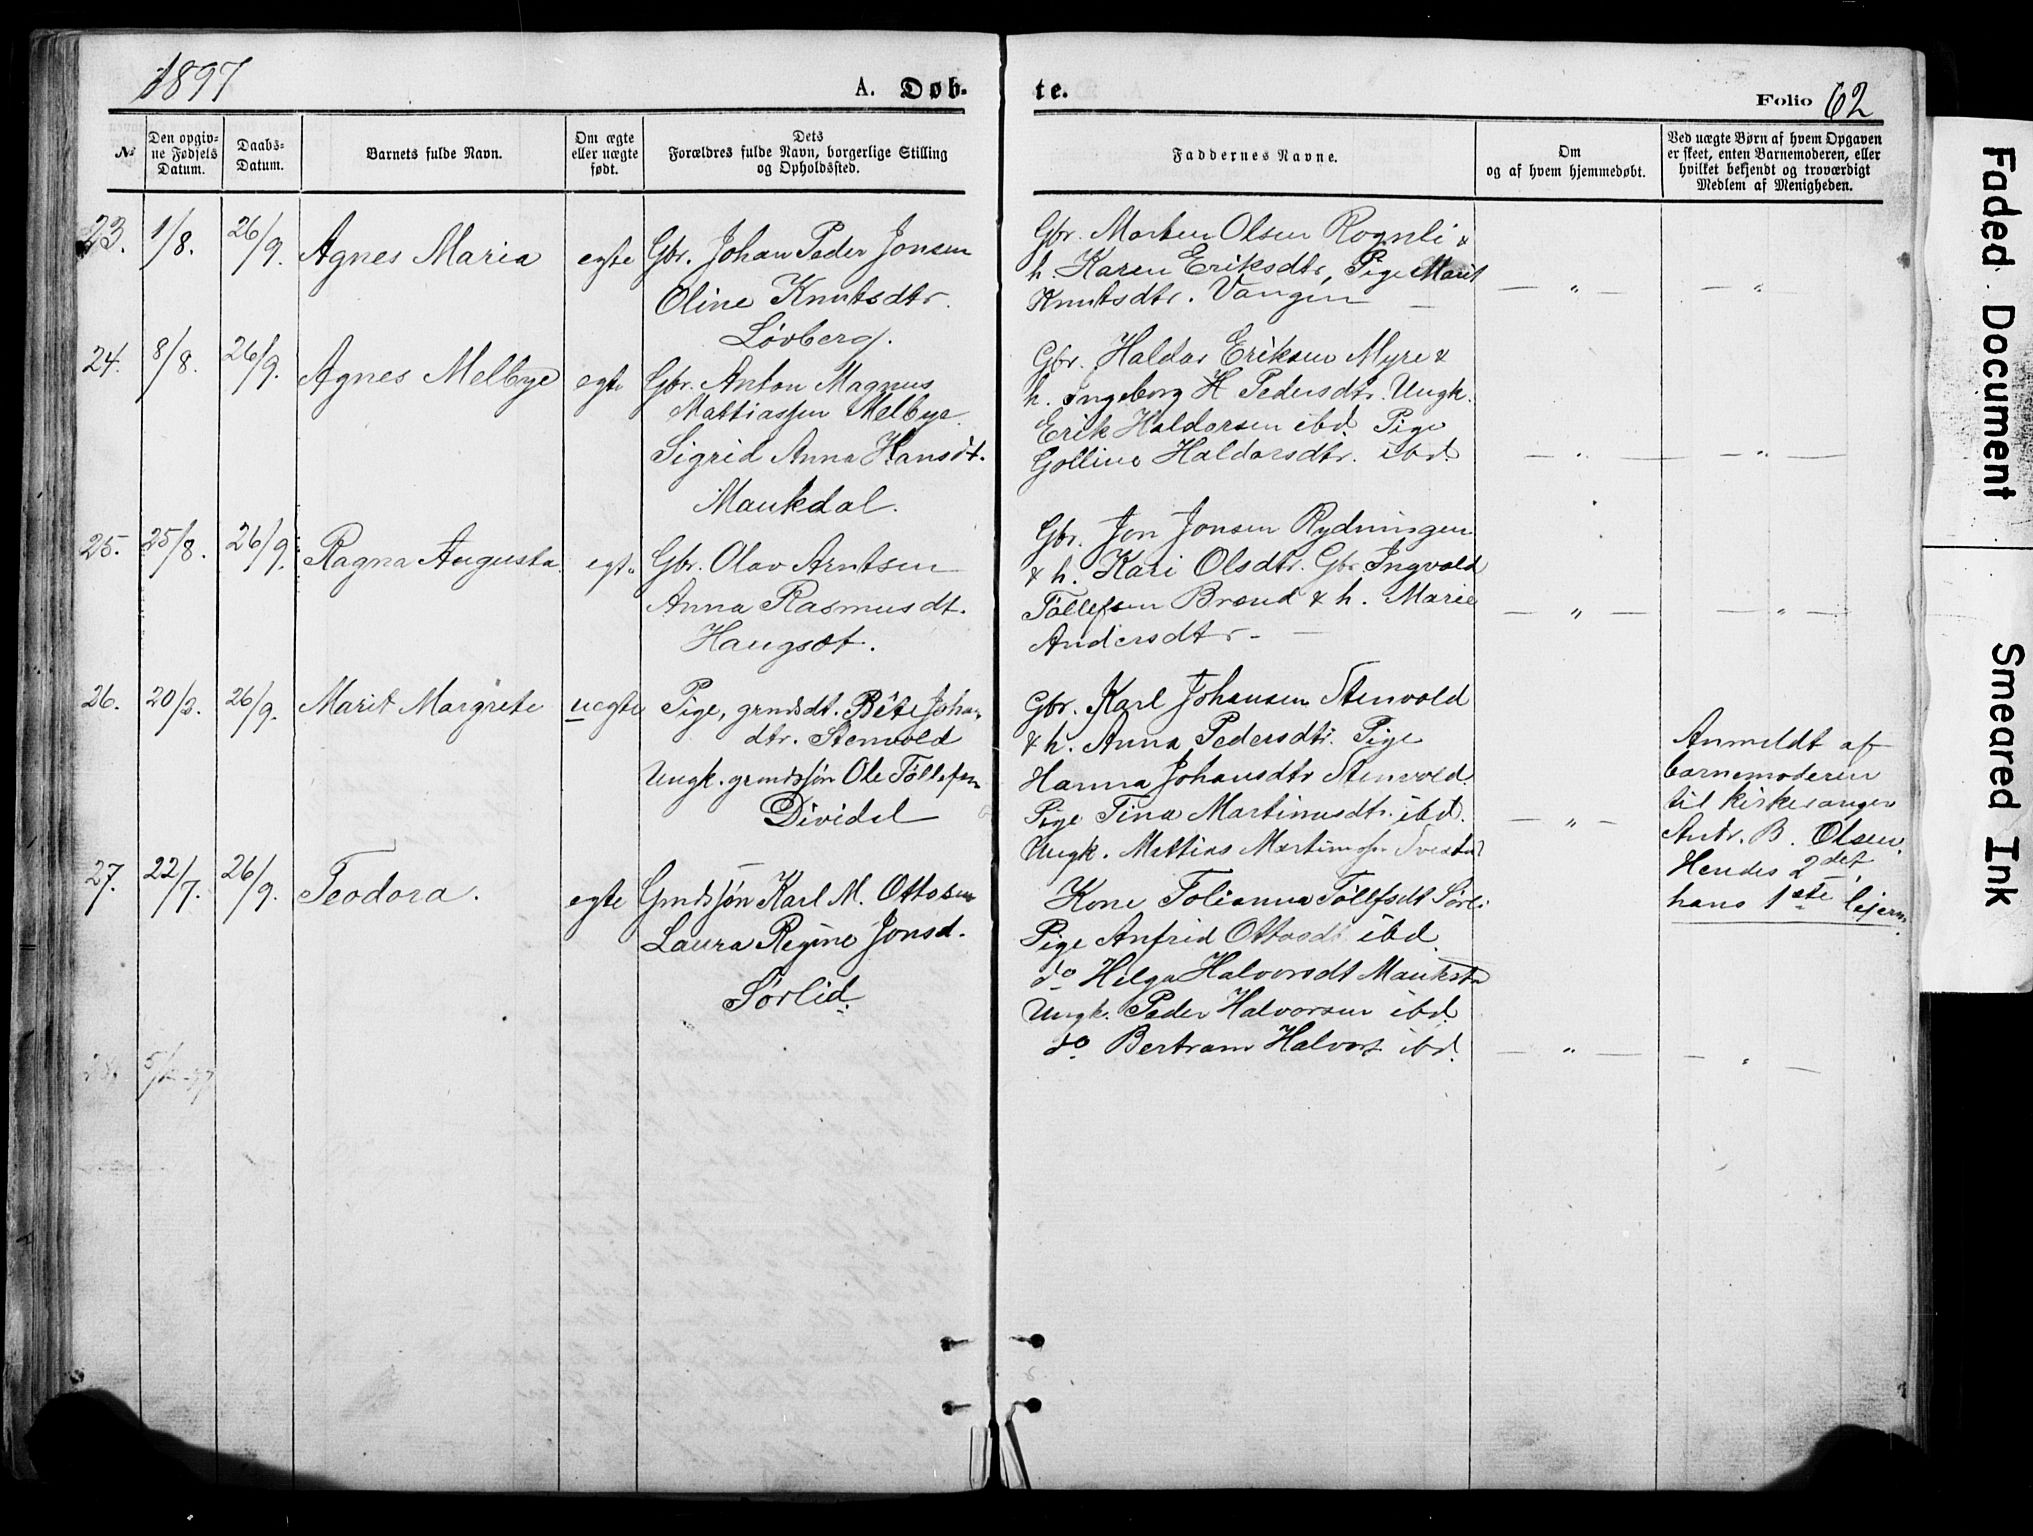 1897
A. Døb-
te.
Folio 62
№
Den opgiv-
ne Fødsels
Datum.
Daabs-
Datum.
Barnets fulde Navn.
Om ægte
eller uægte
født.
Dets
Forældres fulde Navn, borgerlige Stilling
og Opholdssted.
Faddernes Navne.
Om
og af hvem hjemmedøbt.
Ved uægte Børn af hvem Opgaven
er skeet, enten Barnemoderen, eller
hvilket bekjendt og troværdigt
Medlem af Menigheden.
23. 1/8. 26/9. Agnes Maria egte
Gbr. Johan Peder Jonsen
Oline Knutsdtr.
Løvberg.
Gbr. Morten Olsen Rognli &
h. Karen Eriksdtr, Pige Marit
Knutsdtr. Vangen —
— " — — " —
24. 8/8. 26/9. Agnes Melbye egte
Gbr. Anton Magnus
Mattiassen Melbye.
Sigrid Anna Hansdt.
Maukdal.
Gbr. Haldor Eriksen Myre &
h. Ingeborg H Pedersdtr. Ungk.
Erik Haldorsen ibd Pige
Golline Haldorsdtr. ibd.
— " — — " —
25. 25/8. 26/9. Ragna Augusta egte
Gbr. Olav Arntsen
Anna Rasmusdt.
Haugsæt.
Gbr. Jon Jonsen Rydningen
& h. Kari Olsdtr. Gbr. Ingvald
Tøllefsen Brend & h. Marie
Andersdtr. —
— " — — " —
26. 20/3. 26/9. Marit Margrete uegte
Pige, grmdsdt. Bete Joha
dtr. Stenvold
Ungk. grmdssøn Ole Tøllefsen
Dividal
Gbr. Karl Johansen Stenvold
& h. Anna Pedersdtr. Pige
Hanna Johansdtr Stenvold.
Pige Tina Martinusdtr. ibd.
Ungk. Mattias Martinussen
— " —
Anmeldt af
barnemoderen
til kirkesanger
Andr. B. Olsen.
Hendes 2det,
hans 1ste lejerm.
27. 22/7. 26/9. Teodora. egte
Grmdssøn Karl M. Ottosen
Laura Regine Jonsd.
Sørlid.
Kone Tolianna Tøllefsdt Sørli
Pige Anfrid Ottosdt ibd.
do Helga Halvorsdt
Ungk. Peder Halvorsen ibd.
do Bertram Halvors ibd.
— " — — " —
28. 5/
Faded Document
Smeared Ink